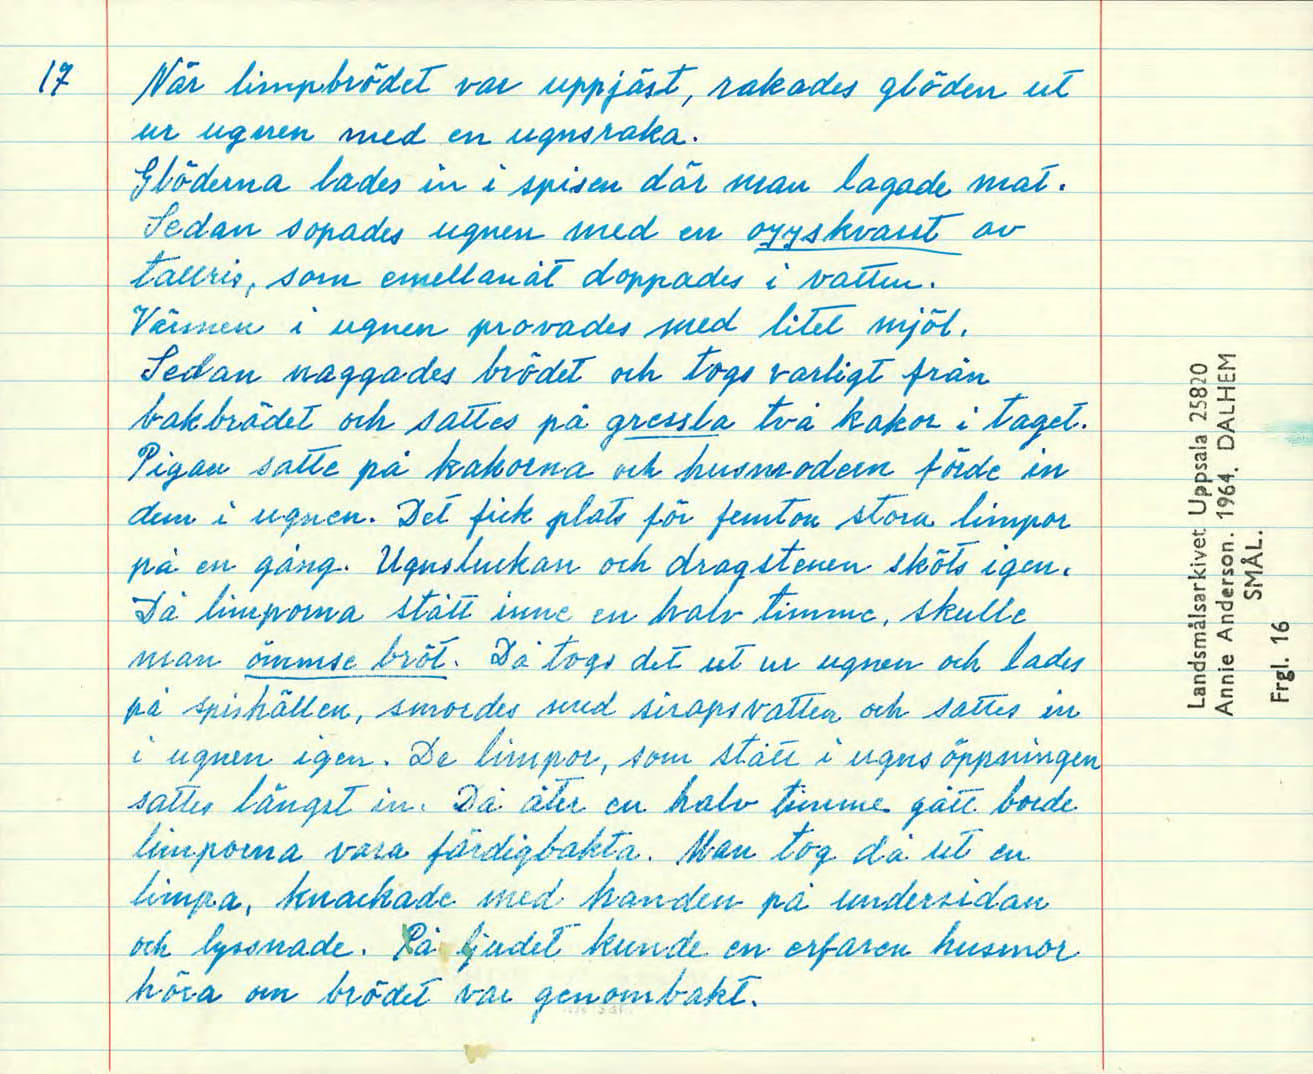 17
När limpbrödet var uppjäst, rakades glöden ut
ur ugnen med en ugnsraka.
Glöderna lades in i spisen där man lagade mat.
Sedan sopades ugnen med en
av
tallris, som emellanåt doppades i vatten.
Värmen i ugnen provades med litet mjöl.
Sedan naggades brödet och togs varligt från
bakbrädet och sattes på gressla två kakor i taget.
Pigan satte på kakorna och husmodern förde in
dem i ugnen. Det fick plats för femton stora limpor
på en gång. Ugnsluckan och dragstenen sköts igen.
Då limporna stått inne en halv timme, skulle
man ömmse bröt. Då togs det ut ur ugnen och lades
på spishällen, smordes med sirapsvatten och sattes in
i ugnen igen. De limpor, som stått i ugnsöppningen
sattes längst in. Då åter en halv timme gått borde
limporna vara färdigbakta. Man tog då ut en
limpa, knackade med handen på undersidan
och lyssnade. På ljudet kunde en erfaren husmor
höra om brödet var genombakt.
Landsmålsarkivet Uppsala 25820
Annie Anderson. 1964. DALHEM
SMÅL.
Frgl. 16